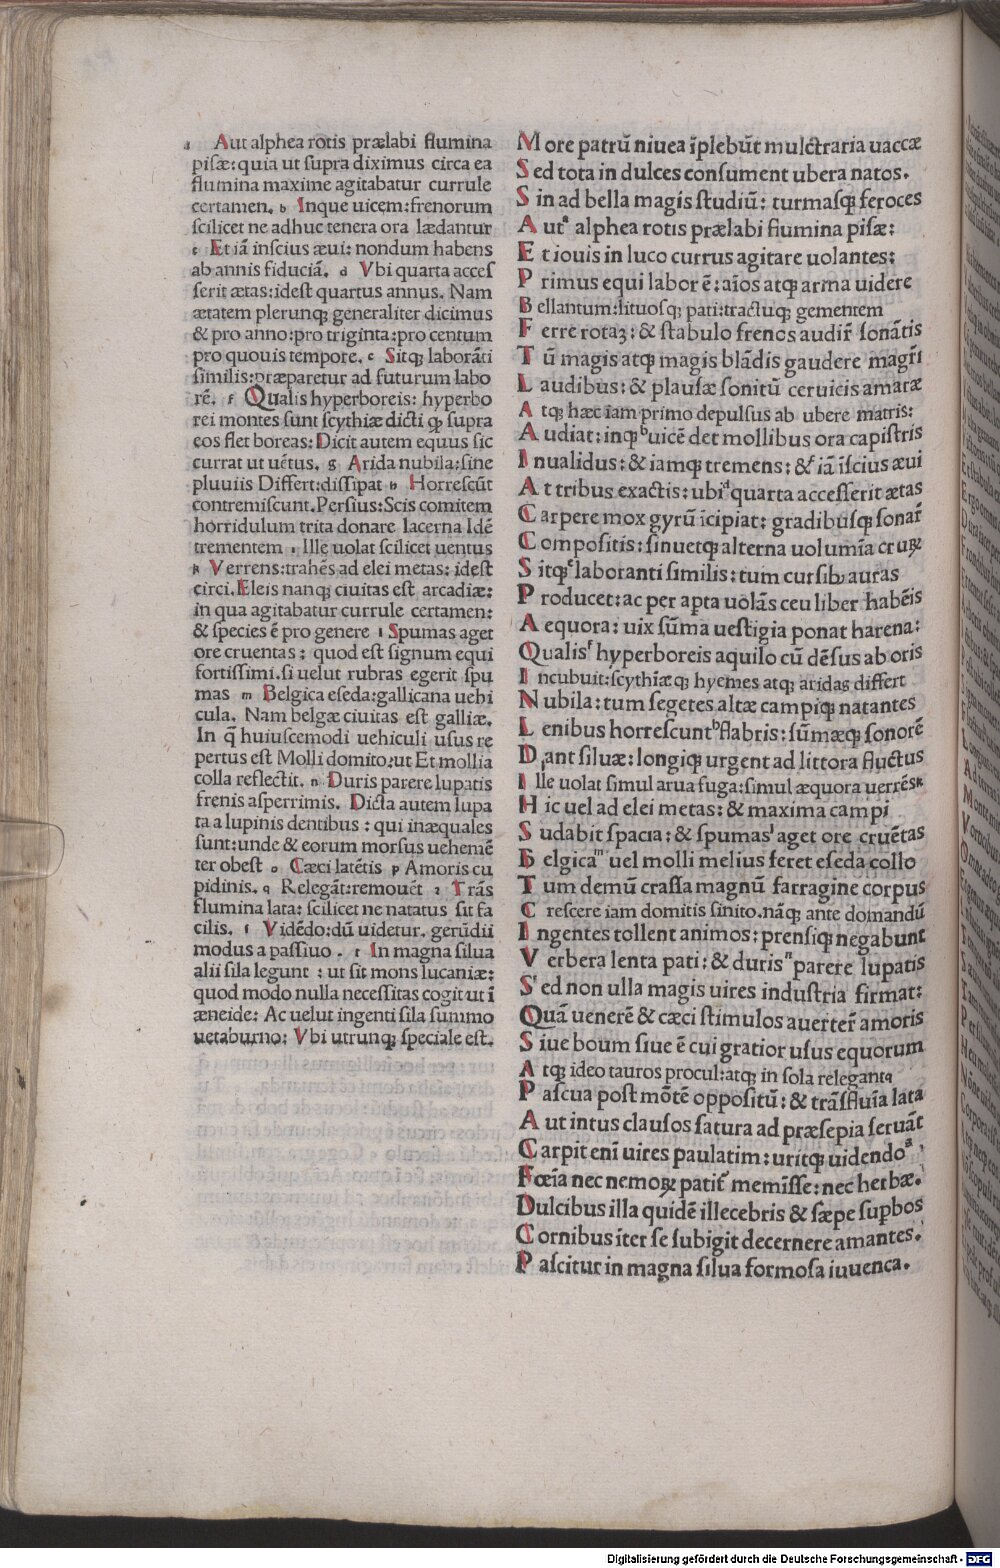 a Aut alphea rotis prælabi flumina
piſæ: quia ut ſupra diximus circa ea
flumina maxime agitabatur currule
certamen. b Inque uicem: frenorum
ſcilicet ne adhuc tenera ora lædantur
c Et iā inſcius æui: nondum habens
ab annis fiduciā. d Vbi quarta acceſ
ſerit ætas: ideſt quartus annus. Nam
ætatem plerunqꝫ generaliter dicimus
& pro anno: pro triginta: pro centum
pro quouis tempore. e Sitqꝫ laborāti
ſimilis: præparetur ad futurum labo
rē. f Qualis hyperboreis: hyperbo
rei montes ſunt ſcythiæ dicti qꝫ ſupra
eos flet boreas: Dicit autem equus ſic
currat ut uētus. g Arida nubila: ſine
pluuiis Differt: diſſipat h Horreſcūt
contremiſcunt. Perſius: Scis comitem
horridulum trita donare lacerna Idē
trementem i Ille uolat ſcilicet uentus
k Verrens: trahēs ad elei metas: ideſt
circi. Eleis nanqꝫ ciuitas eſt arcadiæ:
in qua agitabatur currule certamen:
& ſpecies ē pro genere l Spumas aget
ore cruentas: quod eſt ſignum equi
fortiſſimi. ſi uelut rubras egerit ſpu
mas m Belgica eſeda: gallicana uehi
cula. Nam belgæ ciuitas eſt galliæ.
In q̄ huiuſcemodi uehiculi uſus re
pertus eſt Molli domito: ut Et mollia
colla reflectit. n Duris parere lupatis
frenis aſperrimis. Dicta autem lupa
ta a lupinis dentibus: qui inæquales
ſunt: unde & eorum morſus uehemē
ter obeſt o Cæci latētis p Amoris cu
pidinis. q Relegāt: remouēt r Trāſ
flumina lata: ſcilicet ne natatus ſit fa
cilis. ſ Vidēdo: dū uidetur. gerūdii
modus a paſſiuo. t In magna ſilua
alii ſila legunt: ut ſit mons lucaniæ:
quod modo nulla neceſſitas cogit ut ī
æneide: Ac uelut ingenti ſila ſummo
uetaburno: Vbi utrunqꝫ ſpeciale eſt.
More patrū niuea īplebūt mulctraria uaccæ
Sed tota in dulces conſument ubera natos.
Sin ad bella magis ſtudiū: turmaſqꝫ feroces
Aut a alphea rotis prælabi flumina piſæ:
Et iouis in luco currus agitare uolantes:
Primus equi labor ē: aīos atqꝫ arma uidere
Bellantum: lituoſqꝫ pati: tractuqꝫ gementem
Ferre rotaꝫ: & ſtabulo frenos audir̄ ſonātis
Tū magis atqꝫ magis blādis gaudere magr̄i
Laudibus: & plauſæ ſonitū ceruicis amaræ
Atqꝫ hæc iam primo depulſus ab ubere matris:
Audiat: inqꝫ b uicē det mollibus ora capiſtris
Inualidus: & iamqꝫ tremens: & c iā īſcius æui
At tribus exactis: ubi d quarta acceſſerit ætas
Carpere mox gyrū īcipiat: gradibuſqꝫ ſonar̄
Compoſitis: ſinuetqꝫ alterna uolumīa cruꝝ
Sitqꝫ e laboranti ſimilis: tum curſibꝫ auras
Producet: ac per apta uolās ceu liber habēis
Aequora: uix ſūma ueſtigia ponat harena:
Qualis f hyperboreis aquilo cū dēſus ab oris
Incubuit: ſcythīæqꝫ hyemes atqꝫ aridas differt
Nubila: tum ſegetes altæ campiqꝫ natantes
Lenibus horreſcunt h flabris: ſūmæqꝫ ſonorē
Dant ſiluæ: longiqꝫ urgent ad littora fluctus
Ille uolat ſimul arua fuga: ſimul æquora uerrēs k
Hic uel ad elei metas: & maxima campi
Sudabit ſpacia: & ſpumas l aget ore cruētas
Belgica m uel molli melius feret eſeda collo
Tum demū craſſa magnū farragine corpus
Creſcere iam domitis ſinito. nāqꝫ ante domandū
Ingentes tollent animos: prenſiqꝫ negabunt
Verbera lenta pati: & duris n parere lupatis
Sed non ulla magis uires induſtria firmat:
Quā uenerē & cæci ſtimulos auerter̄ amoris
Siue boum ſiue ē cui gratior uſus equorum
Atqꝫ ideo tauros procul: atqꝫ in ſola relegant q
Paſcua poſt mōtē oppoſitū: & trāſfluīa lata
Aut intus clauſos ſatura ad præſepia ſeruāt
Carpit enī uires paulatim: uritqꝫ uidendo
Fœīa nec nemoꝝ patit̄ memiſſe: nec herbæ.
Dulcibus illa quidē illecebris & ſæpe ſupbos
Cornibus īter ſe ſubigit decernere amantes.
Paſcitur in magna ſilua formoſa iuuenca.
Digitalisierung gefördert durch die Deutsche Forschungsgemeinschaft - DFG